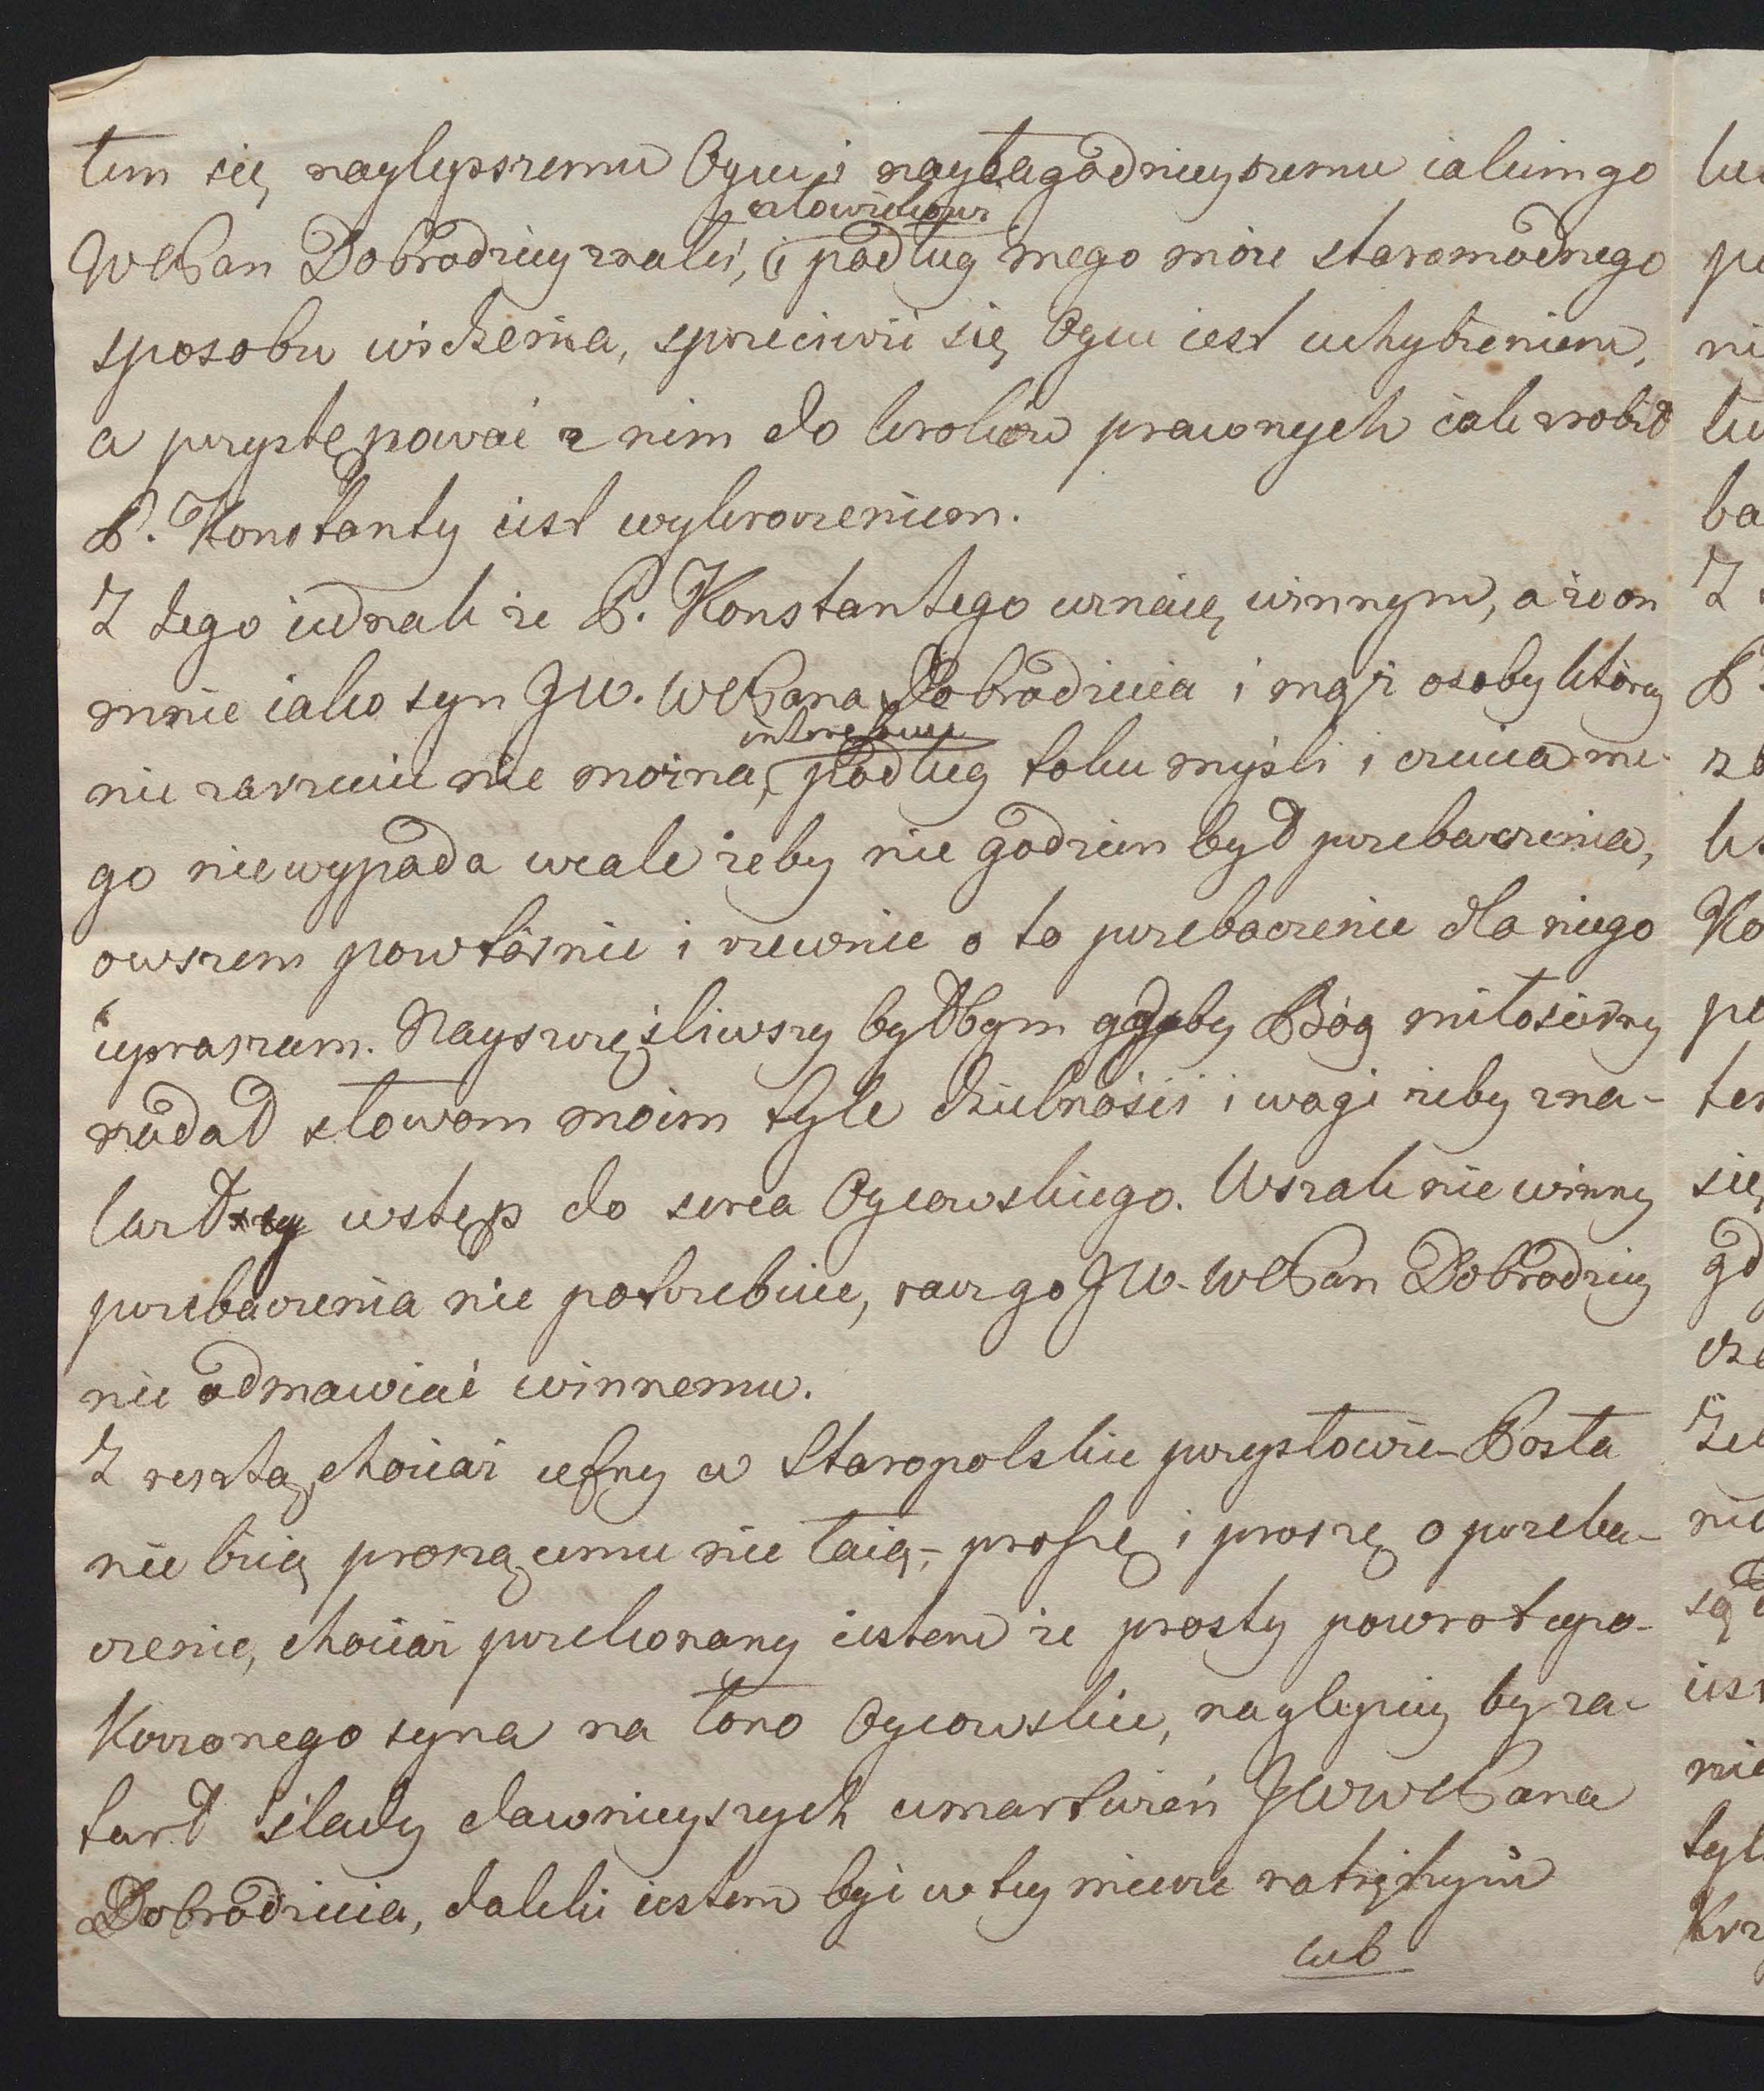 tem się naylepszemu Oycu i nayłagodnieyszemu iakim go
człowiekowi
WPan Dobrodziey znałeś, i podług mego może staromodnego
sposobu widzenia, sprzeciwić się Oycu iest uchybieniem,
a przystępować z nim do kroków prawnych iak zrobił
P. Konstanty iest wykroczeniem.
Z tego iednak że P. Konstantego uznaię winnym, a że on
mnie iako syn JW. WPana Dobrodzieia i mąż osoby którey
interesuie
nie zarzucić nie można, podług toku myśli i czucia me-
go niewypada wcale żeby nie godzien był przebaczenia,
owszem powtórnie i rzewnie o to przebaczenie dla niego
upraszam. Nayszczęśliwszy byłbym gdyby Bóg miłosierny
nadał słowom moim tyle dzielności i wagi żeby zna-
lazły wstęp do serca Oycowskiego. Wszak niewinny
przebaczenia nie potrzebuie, racz go JW. WPan Dobrodziey
nie odmawiać winnemu.
Z resztą, chociaż ufny w Staropolskie przysłowie – Posła
nie biią proszącemu nie łaią –, proszę i proszę o przeba-
czenie, chociaż przekonany iestem że prosty powrot upo-
korzonego syna na łono Oycowskie, naylepiey by za-
tarł ślady dawnieyszych umartwień JWWPana
Dobrodzieia, daleki iestem być w tey mierze natrętnym
lub
lu
po
ni
tu
ba
Z
P.
Ko
po
ten
się
gd
nie
iest
nie
tyl
krz